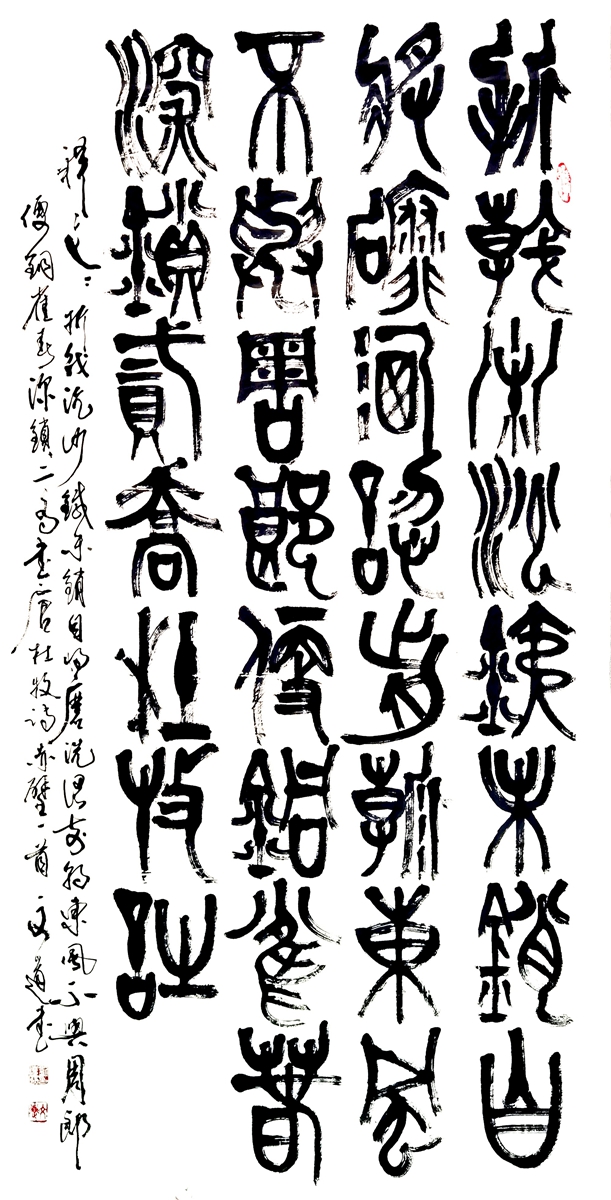 折戟沈沙鐵未銷自
將磨洗認前朝東風
不與周郎便銅雀春
深鎖貳喬杜牧詩
釋文：折戟沉沙鐵未銷自將磨洗認前朝東風不與周郎
便銅雀春深鎖二喬書唐杜牧詩赤壁一首文道書